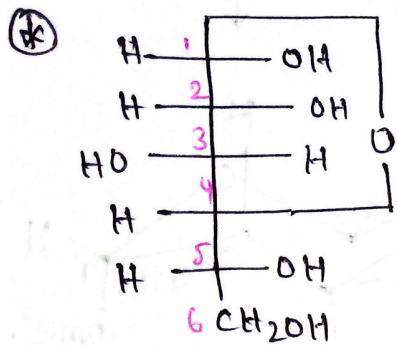 *
H 1 OH
H 2 OH
HO 3 H O
4
H
H 5 OH
6 CH2OH